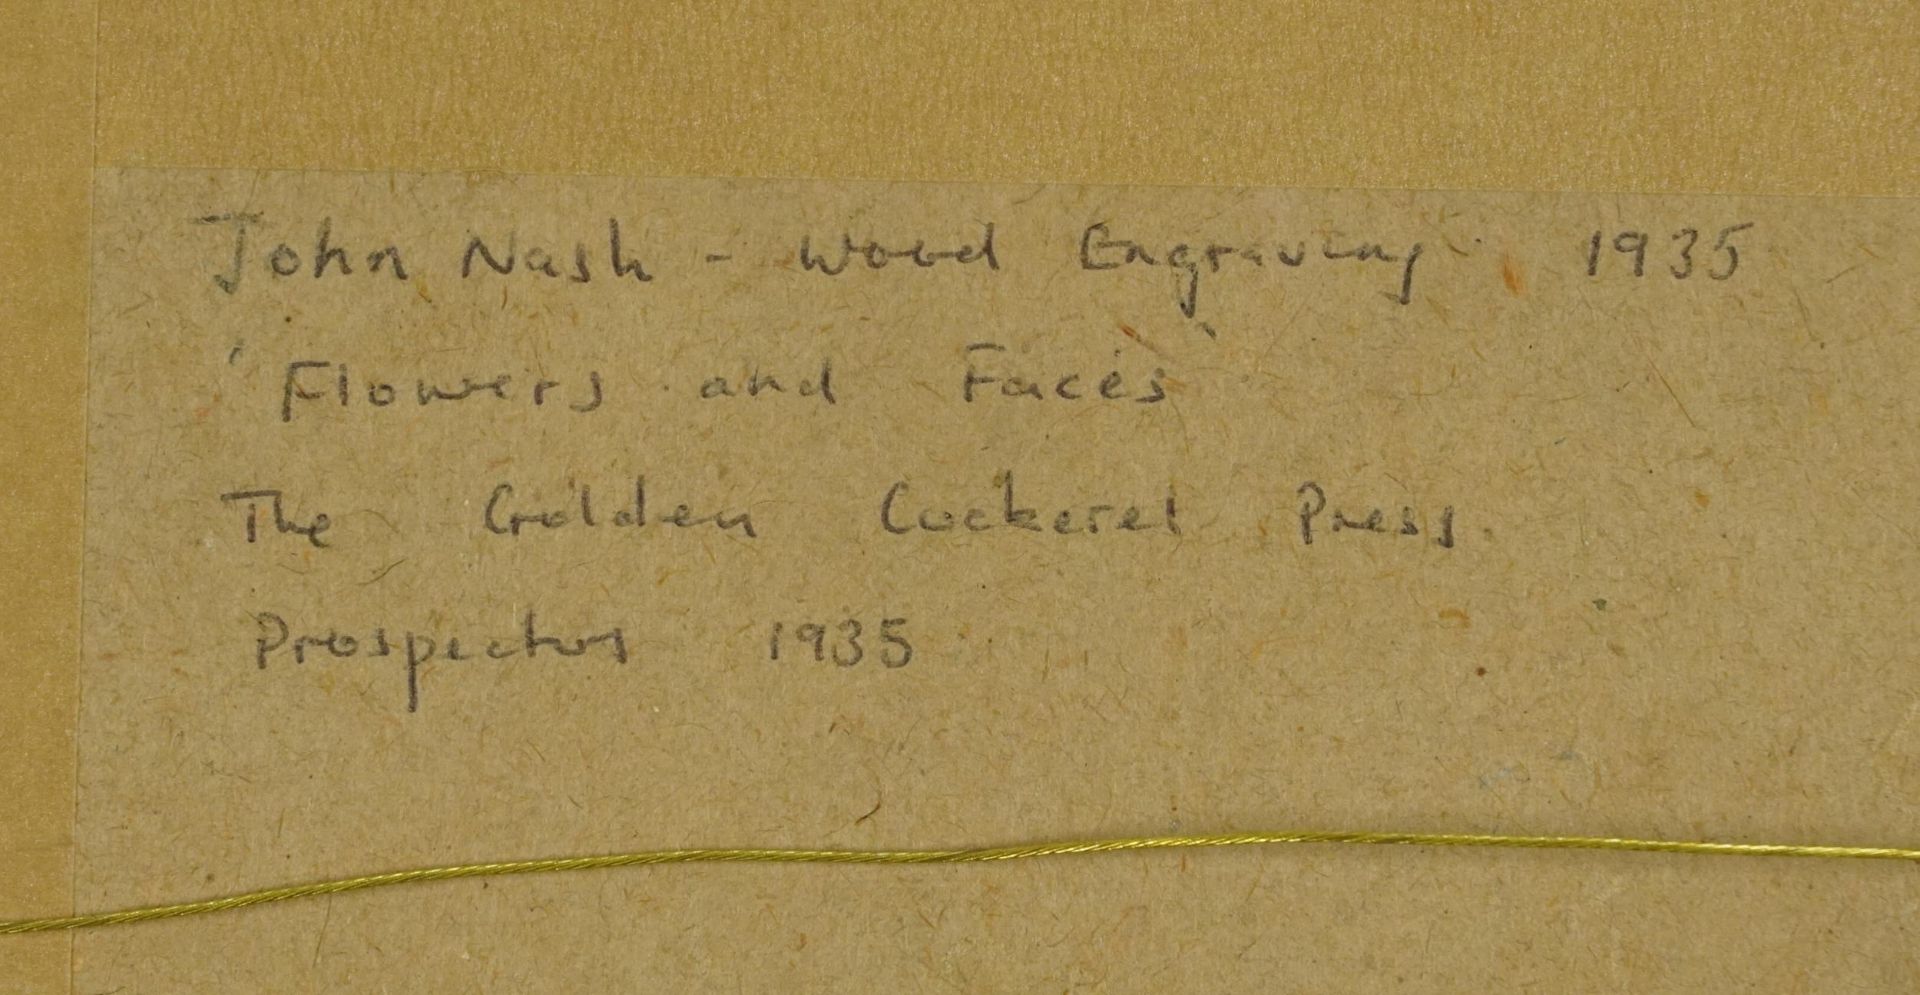 John Nash - Wood Engraving 1935
'Flowers and Faces'
The Golden Cockerel Press
Prospectus 1935